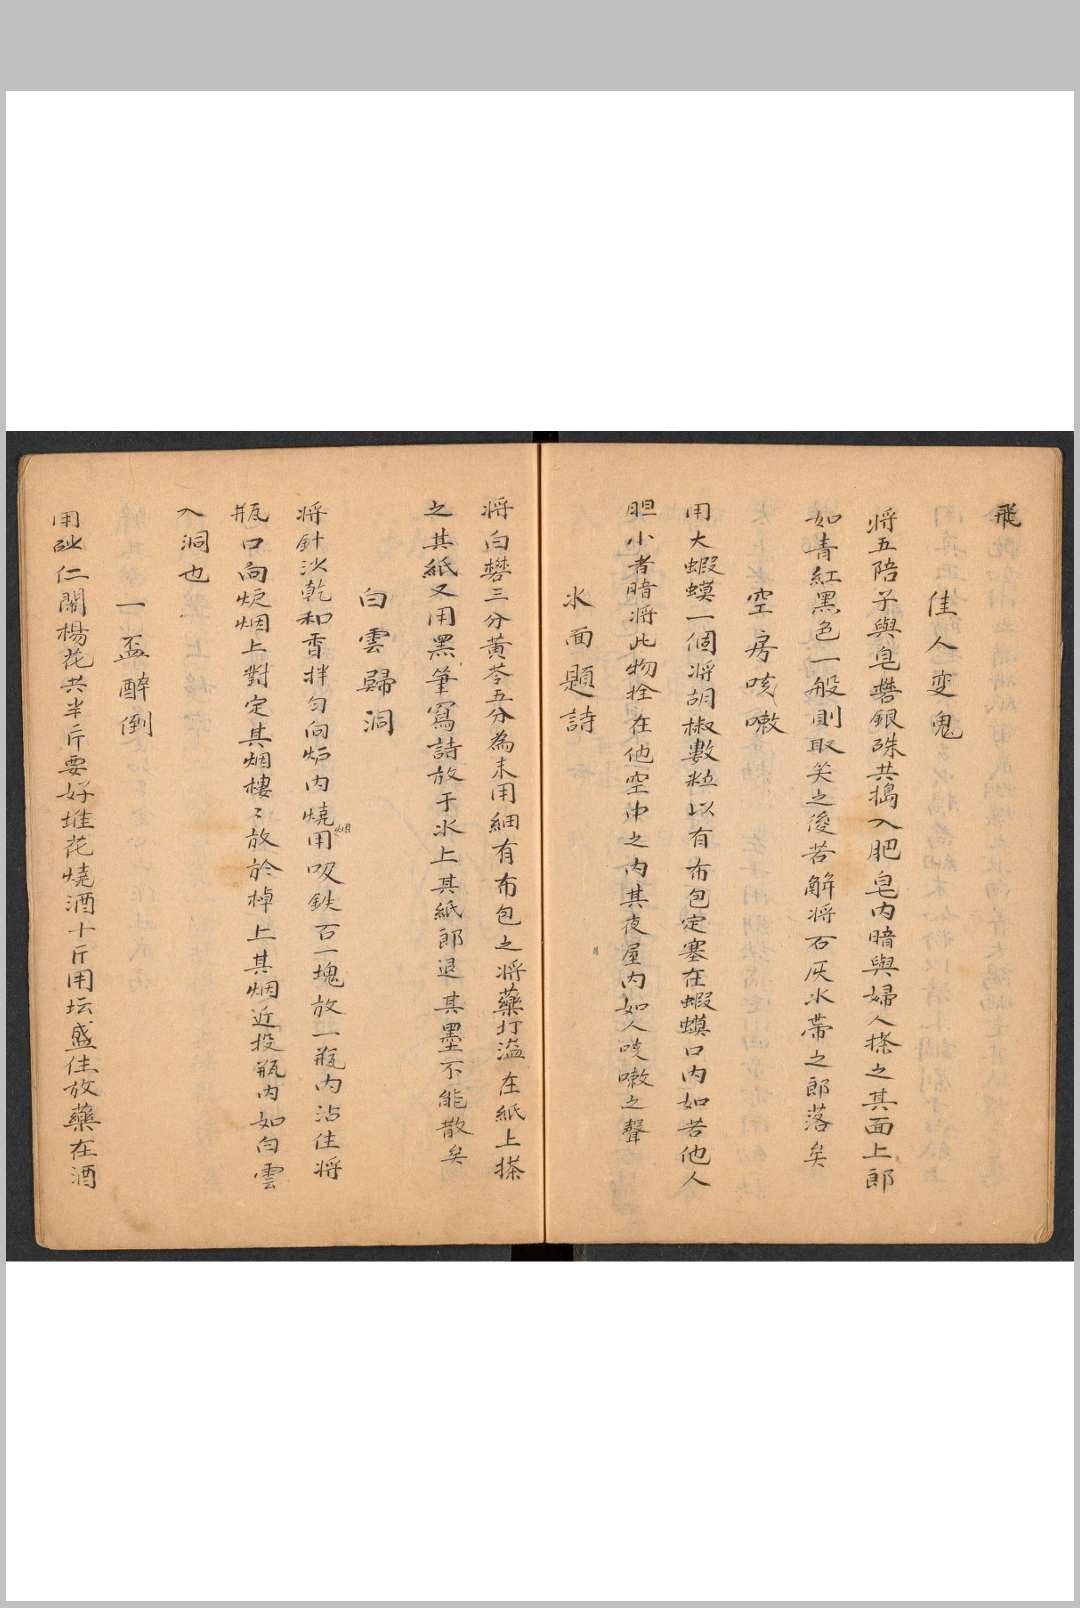 飛
佳人变鬼
将五陪子與皂礬銀硃共搗入肥皂内暗與婦人搽之其面上郎
如青紅黑色一般則取笑之後若觧将石灰水蒂之郎落矣
空房咳嗽
用大蝦蟆一個将胡椒數粒以有布包定塞在蝦蟆口内如若他人
胆小者暗将此物拴在他空中之内其夜屋内如人咳嗽之聲
水面題詩
将白礬三分黄芩五分為末用細有布包之将藥打溢在紙上搽
之其紙又用黑筆寫詩放于水上其紙郎退其墨不能散矣
白雲歸洞
将針沙乾和香拌匀向炉内燒用吸鉄石一塊放一瓶内沾住将
瓶口向炉烟上對定其烟樓〻放於棹上其烟近投瓶内如白雲
入洞也
一盃醉倒
用砂仁鬧楊花共半斤要好堆花燒酒十斤用坛盛住放藥在酒